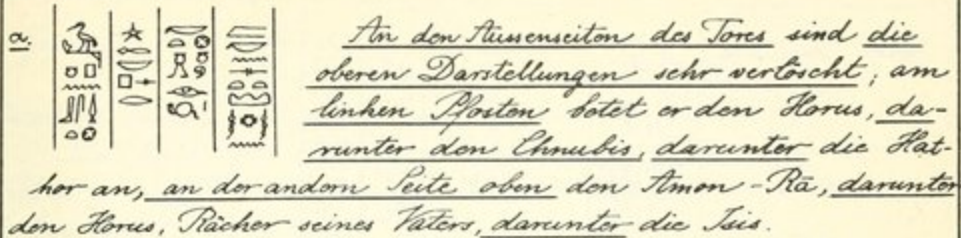 a.
An den Aussenseiten des Tores sind die
oberen Darstellungen sehr verlöscht; am
linken Pfosten betet er den Horus, da-
runter den Chnubis, darunter die Hat-
hor an, an der andern Seite oben den Amon-Rā, darunter
den Horus, Rächer seines Vaters, darunter die Isis.